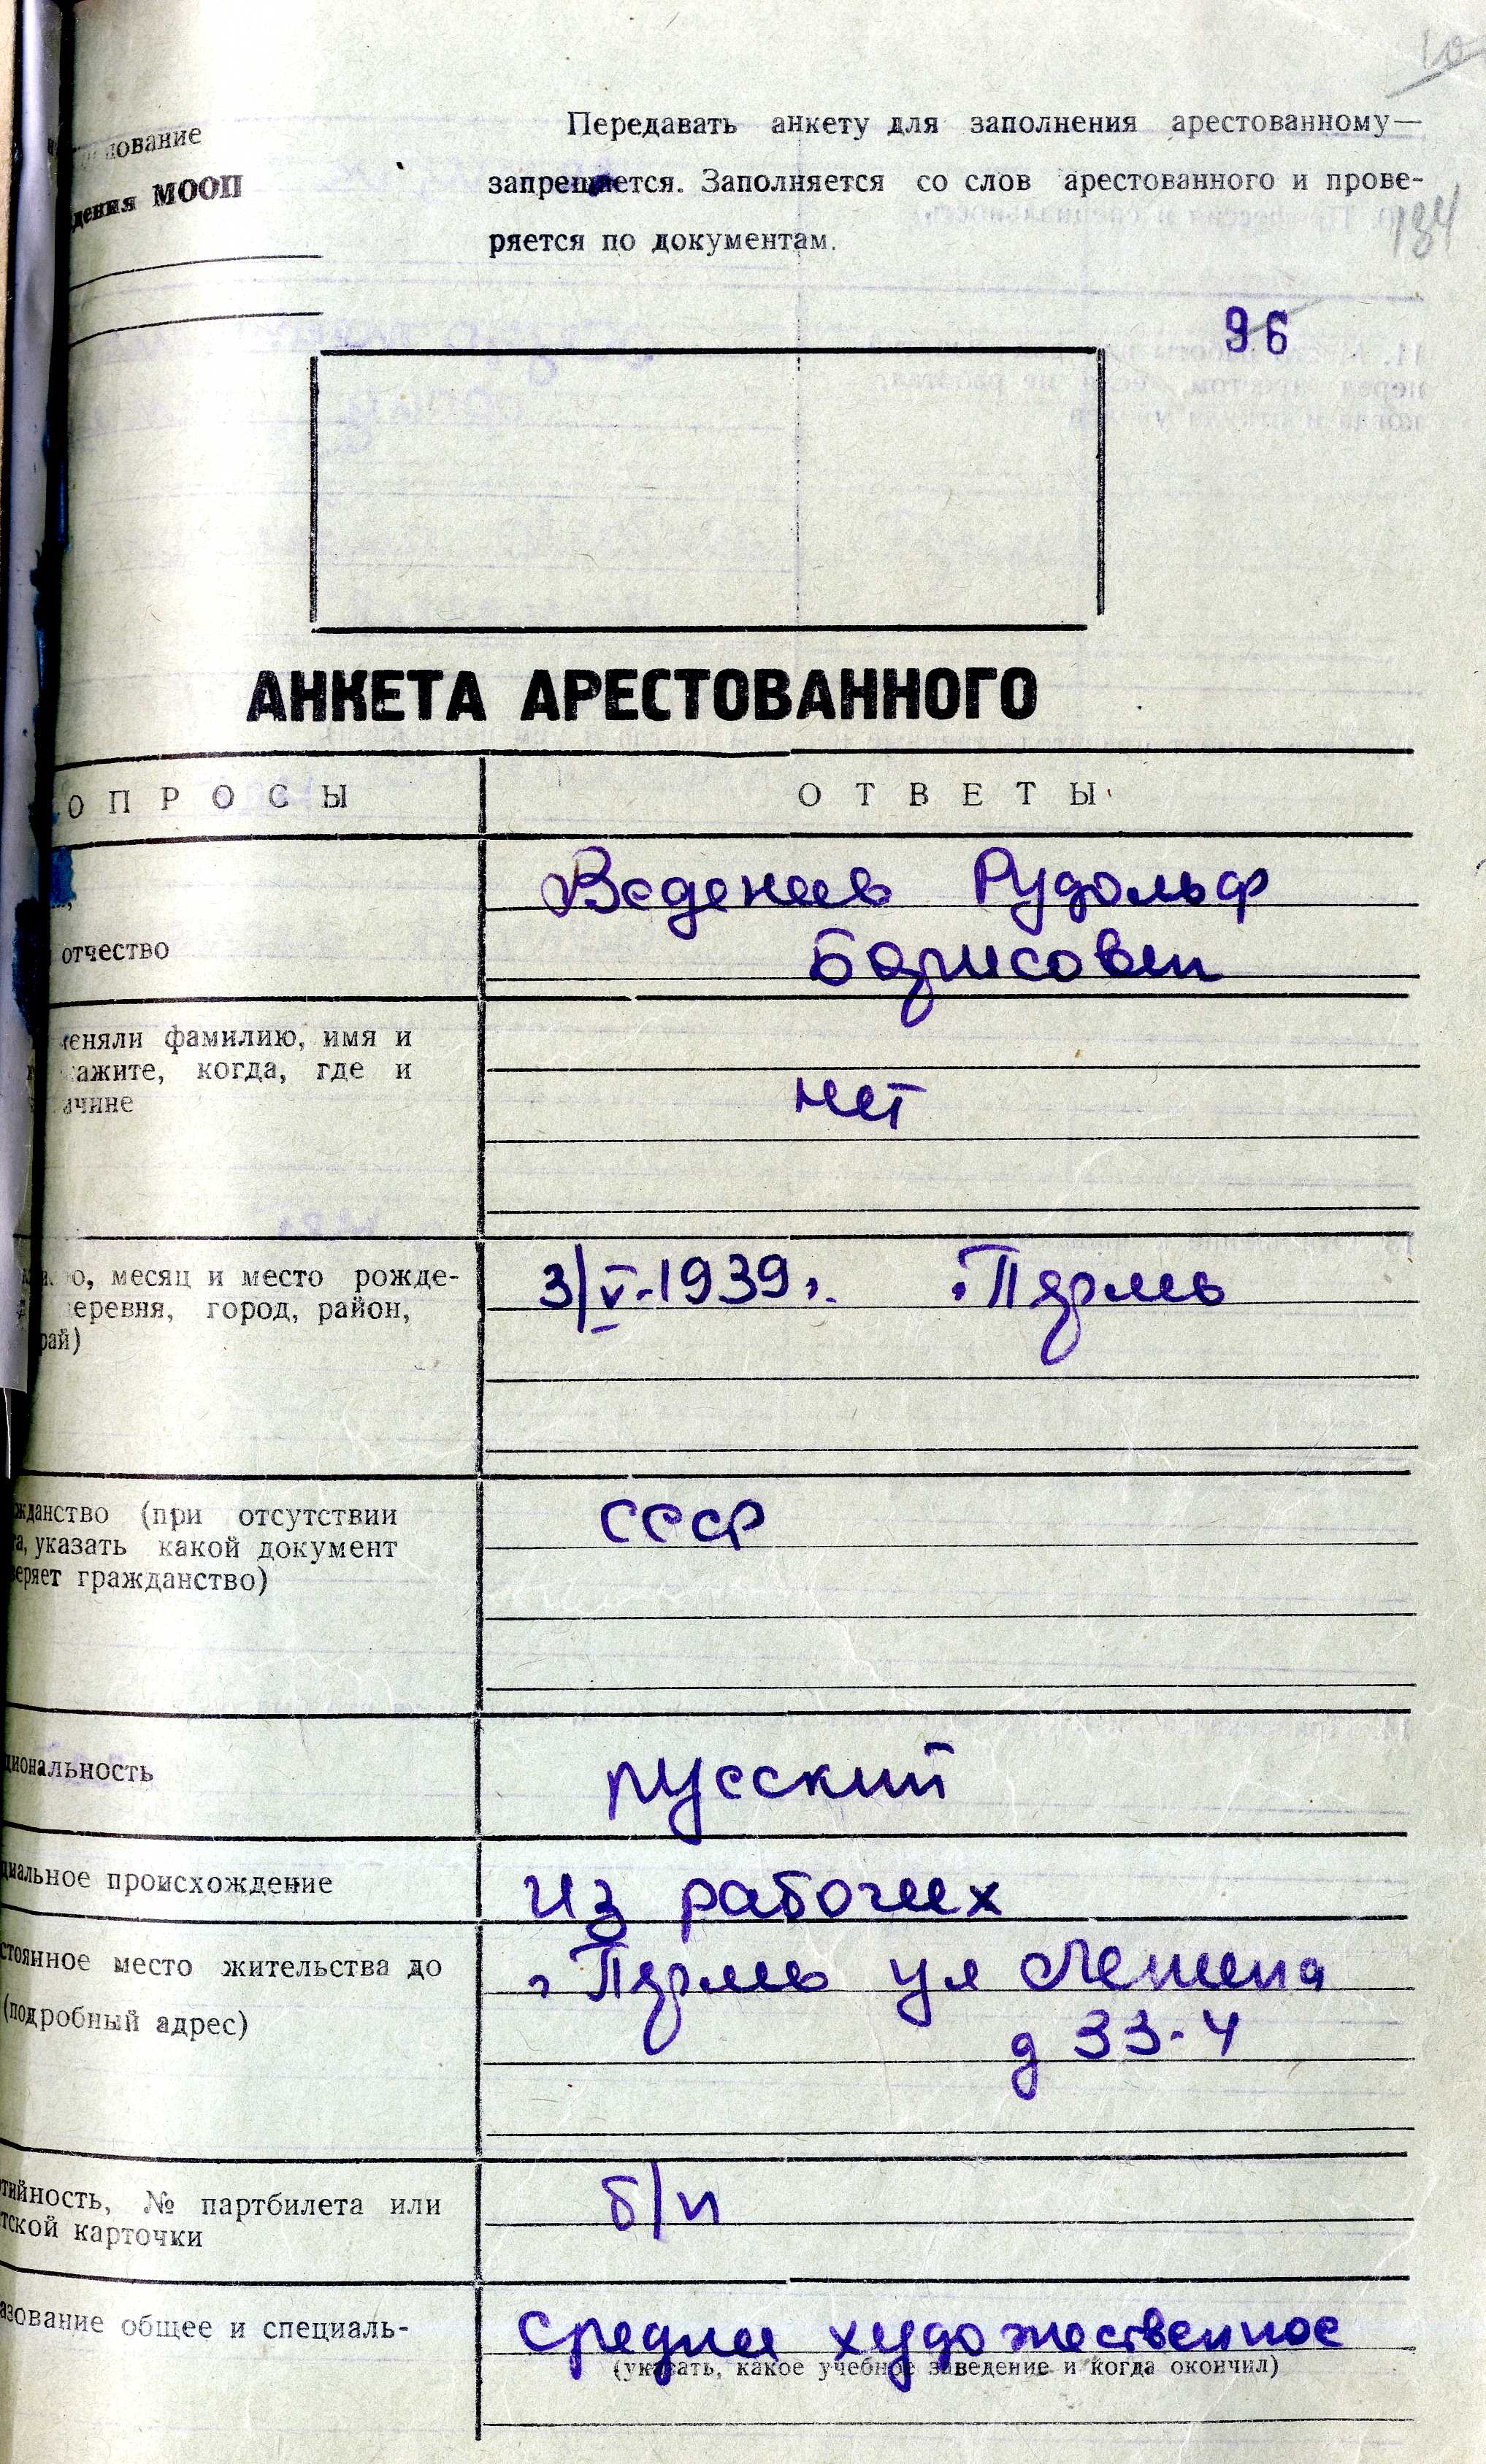 Передавать анкету для заполнения арестованному—
запрещается. Заполняется со слов арестованного и прове-
ряется по документам.
нование
дения МООП
10
184
96
АНКЕТА АРЕСТОВАННОГО
ОПРОСЫ
ОТВЕТЫ
Веденеев Рудольф
отчество
Борисович
еняли фамилию, имя и
ажите, когда, где и
ичине
нет
о, месяц и место рожде-
еревня, город, район,
рай)
3/V-1939г. г. Пермь
жданство (при отсутствии
а, указать какой документ
еряет гражданство)
СССР
циональность
русский
циальное происхождение
из рабочих
стоянное место жительства до
(подробный адрес)
г Пермь ул Ленина
д 33-4
тийность, № партбилета или
тской карточки
б/п
азование общее и специаль-
среднее художественное
(указать, какое учебное заведение и когда окончил)